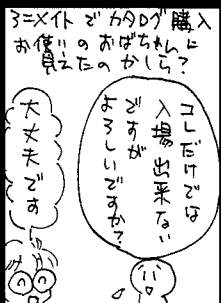 アニメイトでカタログ購入
お使いのおばちゃんに
見えたのかしら？
コレだけでは
入場出来ない
ですが
よろしいですか？
大丈夫です